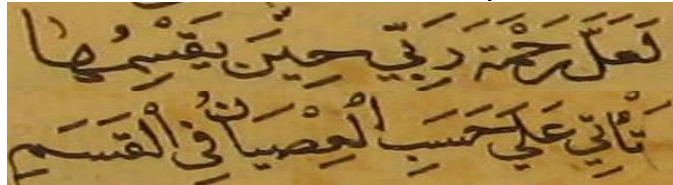 لَعَلَّ رَحْمَةَ رَبِّي حِيْنَ يَقْسِمُهَا
تَأْتِي عَلَي حَسَبِ الْعِصْيَانِ فِي الْقَسَمِ